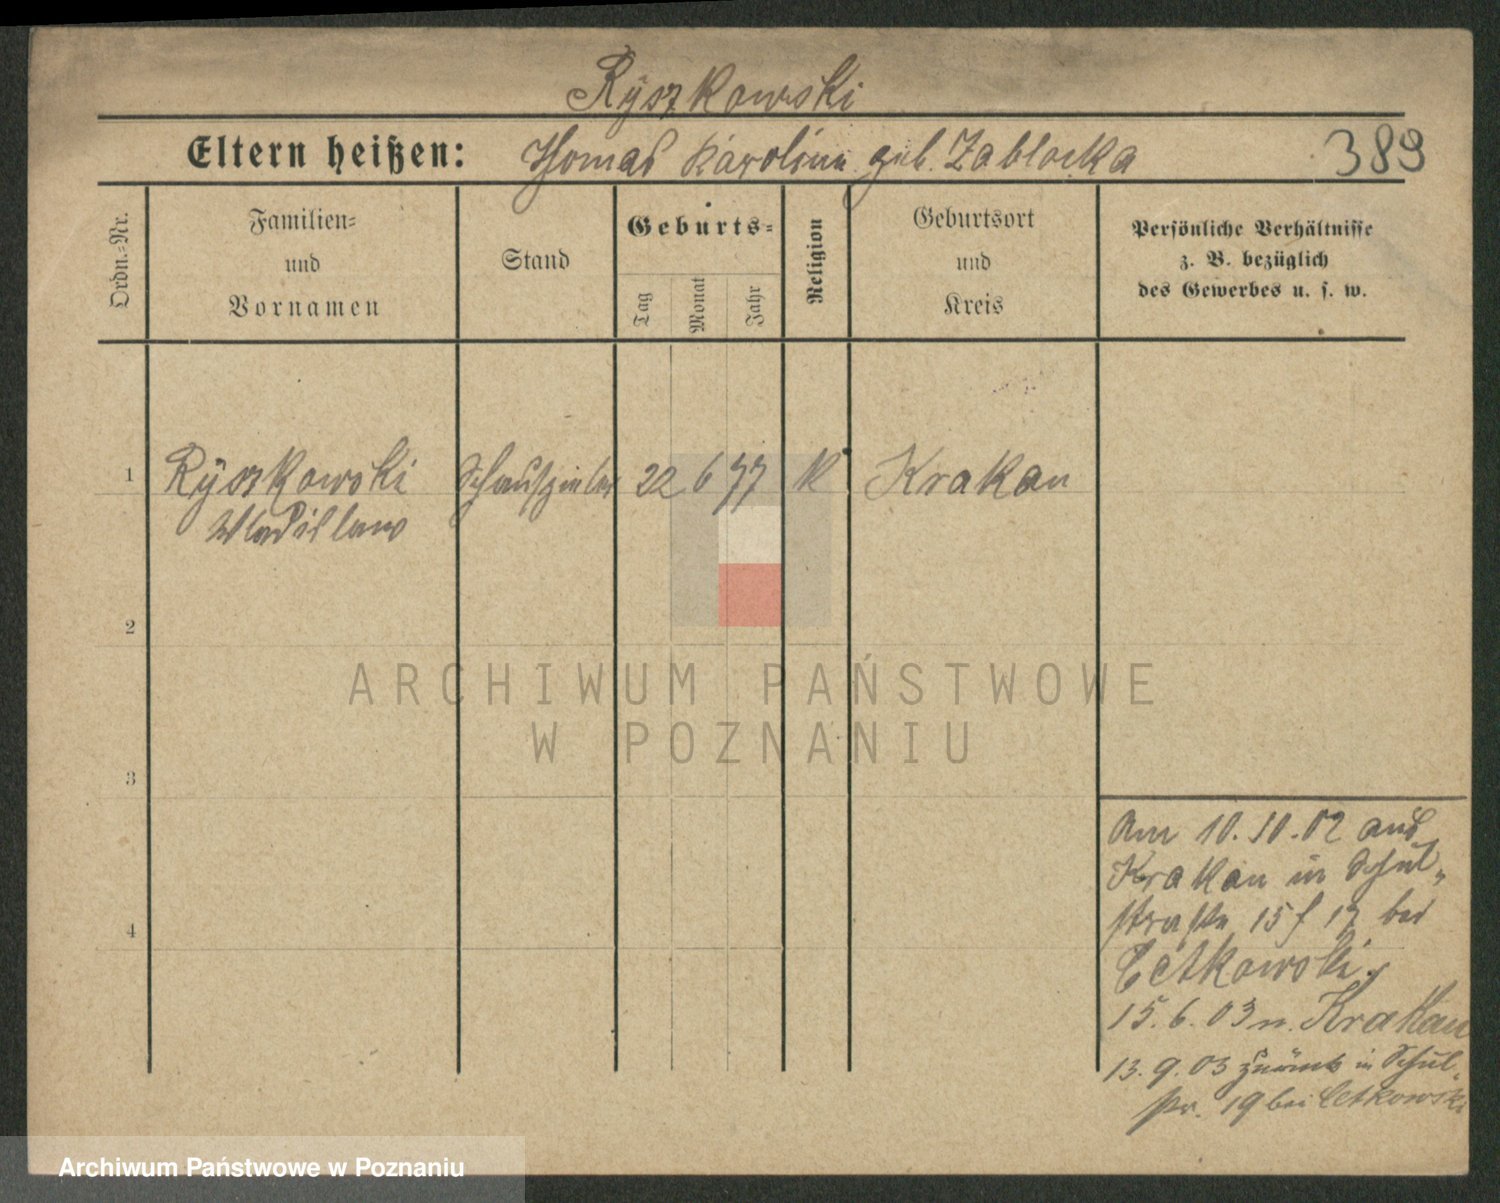 Ryszkowski
Eltern heißen: Thomas Karoline geb. Zablocka
389
Ordn.-Nr.
Familien-
und
Vornamen
Stand
Geburts-
Tag
Monat
Jahr
Religion
Geburtsort
und
Kreis
Persönliche Verhältnisse
z. B. bezüglich
des Gewerbes u. s. w.
1 Ryszkowski Schauspieler 22 6 77 K Krakau
Wladislaw
2
3
4
Am 10.10.02 aus
Krakau in Schul-
straße 15 f 17 bei
Cetkowski,
15.6.03 n. Krakau
13.9.03 zurück in Schul-
str. 19 bei Cetkowski
ARCHIWUM PAŃSTWOWE
W POZNANIU
Archiwum Państwowe w Poznaniu